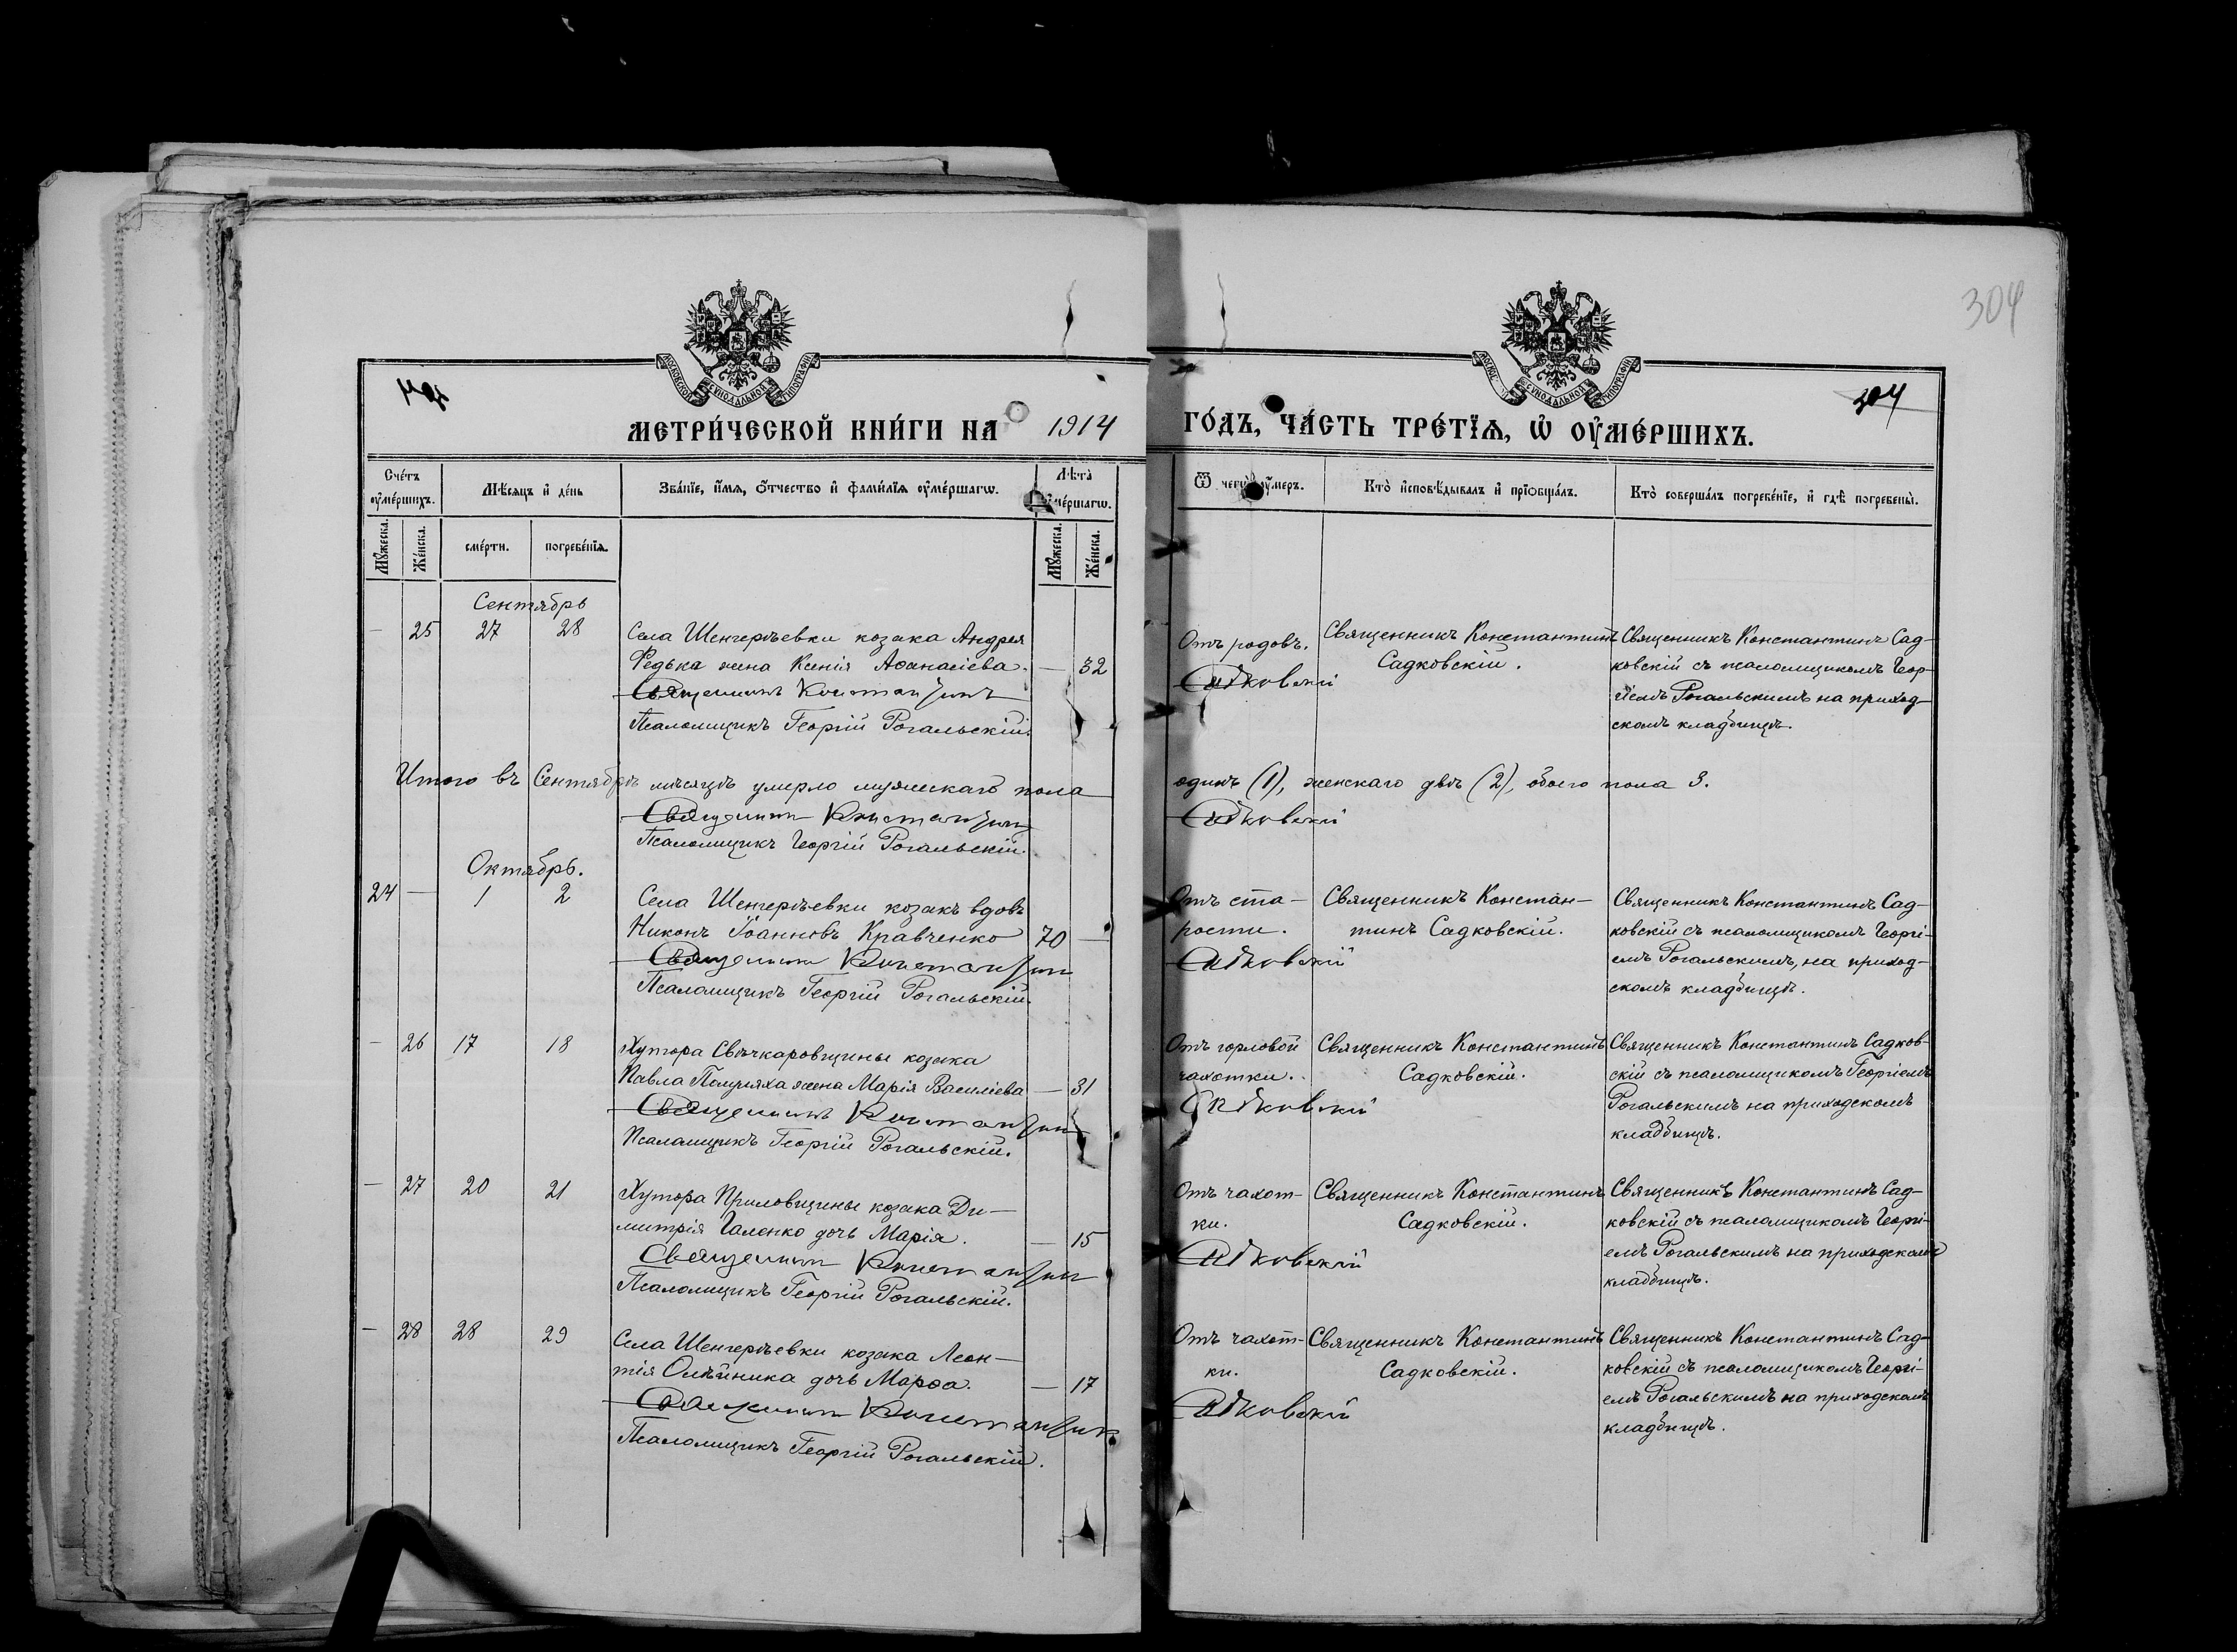 304
304
МОСКОВСКОЙ СѴНОДАЛЬНОЙ ТИПОГРАФІИ
МОСКОВ СѴНОДАЛЬНОЙ ТИПОГРАФІИ
МЕТРИ́ЧЕСКОЙ КНИ́ГИ НА 1914 ГО́ДЪ, ЧА́СТЬ ТРЕ́ТЇѦ, Ѡ҆ ОУ҆МЕ́РШИХЪ.
Сче́тъ оу҆ме́ршихъ.
Мѣ́сяцъ и҆ де́нь
Зва́нїе, и҆́мѧ, ѻ҆́тчество и҆ фами́лїѧ оу҆ме́ршагѡ.
Лѣ́та̀ оу҆ме́ршагѡ.
Ѿ чегѡ̀ оу҆́меръ.
Кто̀ и҆сповѣ́дывалъ и҆ прїѡбща́лъ.
Кто̀ соверша́лъ погребе́нїе, и҆ гдѣ̀ погребены̀.
Мꙋ́жеска.
Же́нска.
сме́рти.
погребе́нїѧ.
Мꙋ́жеска.
Же́нска.
Сентябрь
— 25 27 28
Села Шенгерѣевки козака Андрея
Редька жена Ксенія Аѳанасіева. — 32
Священникъ Константинъ
Псаломщикъ Георгій Рогальскій.
Отъ родовъ.
Садковскій
Священникъ Константинъ
Садковскій.
Священникъ Константинъ Сад-
ковскій съ псаломщикомъ Геор-
гіемъ Рогальскимъ на приход-
скомъ кладбищѣ.
Итого въ Сентябрѣ мѣсяцѣ умерло мужескаго пола одинъ (1), женскаго двѣ (2), обоего пола 3.
Священникъ Константинъ Садковскій
Псаломщикъ Георгій Рогальскій.
Октябрь.
24 — 1 2
Села Шенгерѣевки козакъ вдовъ
Никонъ Іоанновъ Кравченко 70 —
Священникъ Константинъ
Псаломщикъ Георгій Рогальскій.
Отъ ста-
рости.
Садковскій
Священникъ Констан-
тинъ Садковскій.
Священникъ Константинъ Сад-
ковскій съ псаломщикомъ Георгі-
емъ Рогальскимъ, на приход-
скомъ кладбищѣ.
— 26 17 18
Хутора Свѣчкаровщины козака
Павла жена Марія Василіева — 31
Священникъ Константинъ
Псаломщикъ Георгій Рогальскій.
Отъ горловой
чахотки.
Садковскій
Священникъ Константинъ
Садковскій.
Священникъ Константинъ Садков-
скій съ псаломщикомъ Георгіемъ
Рогальскимъ на приходскомъ
кладбищѣ.
— 27 20 21
Хутора Приловщины козака Ди-
митрія Галенко дочь Марія. — 15
Священникъ Константинъ
Псаломщикъ Георгій Рогальскій.
Отъ чахот-
ки.
Садковскій
Священникъ Константинъ
Садковскій.
Священникъ Константинъ Сад-
ковскій съ псаломщикомъ Георгі-
емъ Рогальскимъ на приходскомъ
кладбищѣ.
— 28 28 29
Села Шенгерѣевки козака Леон-
тія Олѣйника дочь Марѳа. — 17
Священникъ Константинъ
Псаломщикъ Георгій Рогальскій.
Отъ чахот-
ки.
Садковскій
Священникъ Константинъ
Садковскій.
Священникъ Константинъ Сад-
ковскій съ псаломщикомъ Георгі-
емъ Рогальскимъ на приходскомъ
кладбищѣ.